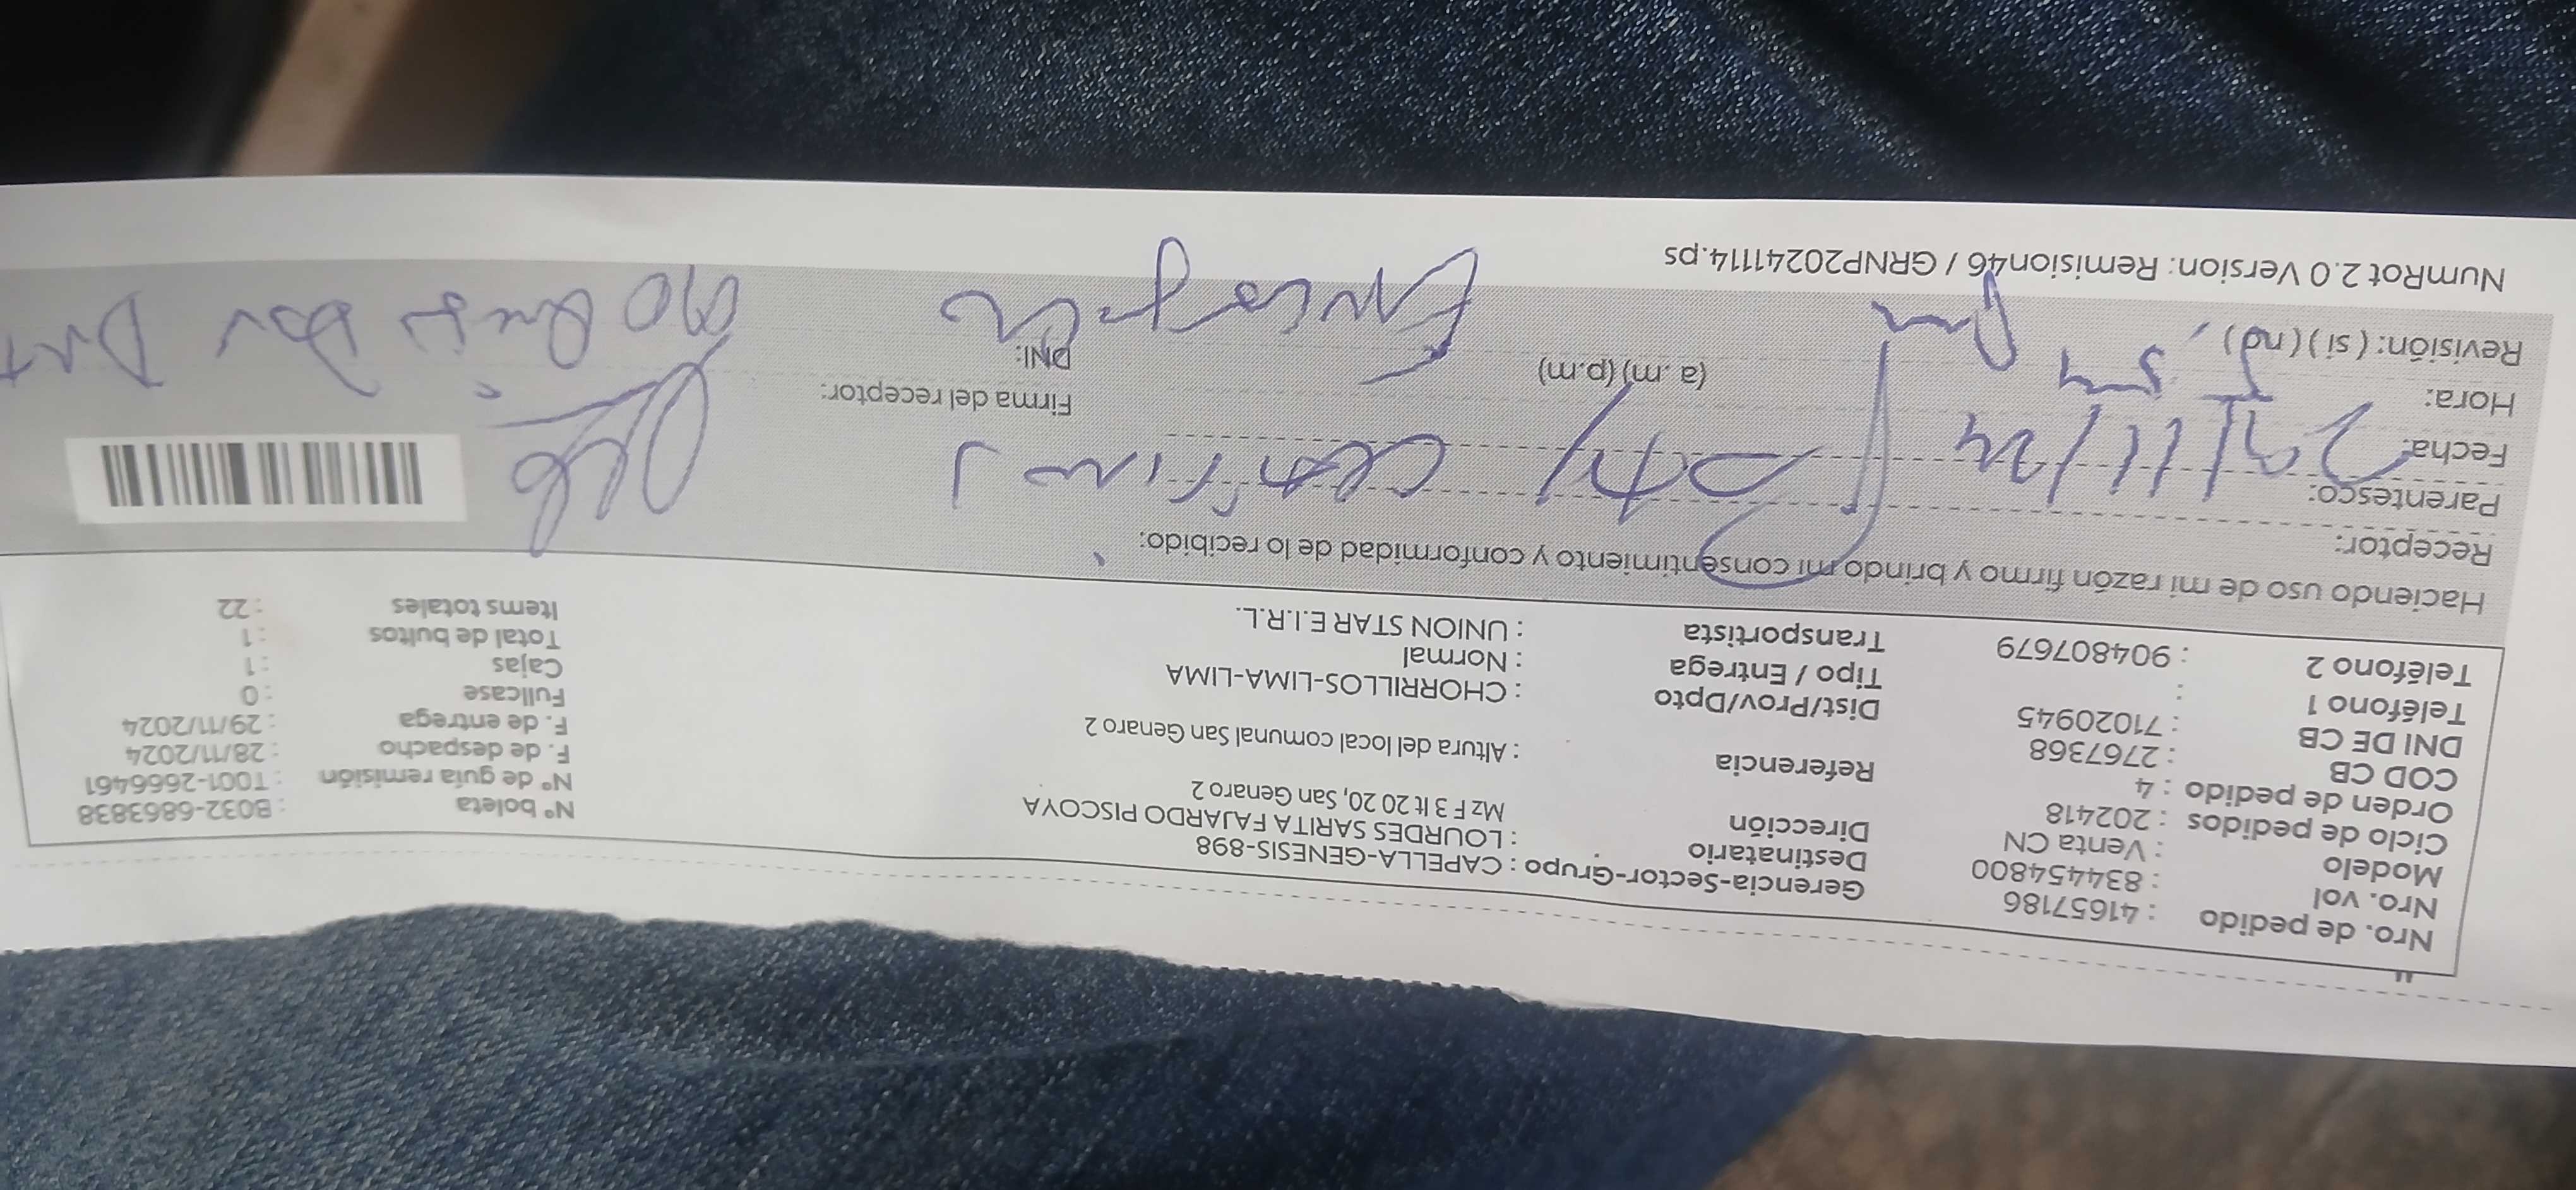 Nro. de pedido : 41657186
Nro. vol : 834454800
Modelo : Venta CN
Ciclo de pedidos : 202418
Orden de pedido : 4
COD CB : 2767368
DNI DE CB : 71020945
Teléfono 1 :
Teléfono 2 : 904807679
Gerencia-Sector-Grupo : CAPELLA-GENESIS-898
Destinatario : LOURDES SARITA FAJARDO PISCOYA
Dirección Mz F 3 lt 20 20, San Genaro 2
Referencia : Altura del local comunal San Genaro 2
Dist/Prov/Dpto : CHORRILLOS-LIMA-LIMA
Tipo / Entrega : Normal
Transportista : UNION STAR E.I.R.L.
Nº boleta : B032-6863838
Nº de guía remisión : T001-2666461
F. de despacho : 28/11/2024
F. de entrega : 29/11/2024
Fullcase : 0
Cajas : 1
Total de bultos : 1
Items totales : 22
Haciendo uso de mi razón firmo y brindo mi consentimiento y conformidad de lo recibido:
Receptor:
Parentesco:
Fecha: 29/11/24
Hora: (a .m) (p.m)
Revisión: ( si ) ( no )
Firma del receptor:
DNI:
NumRot 2.0 Version: Remision46 / GRNP20241114.ps